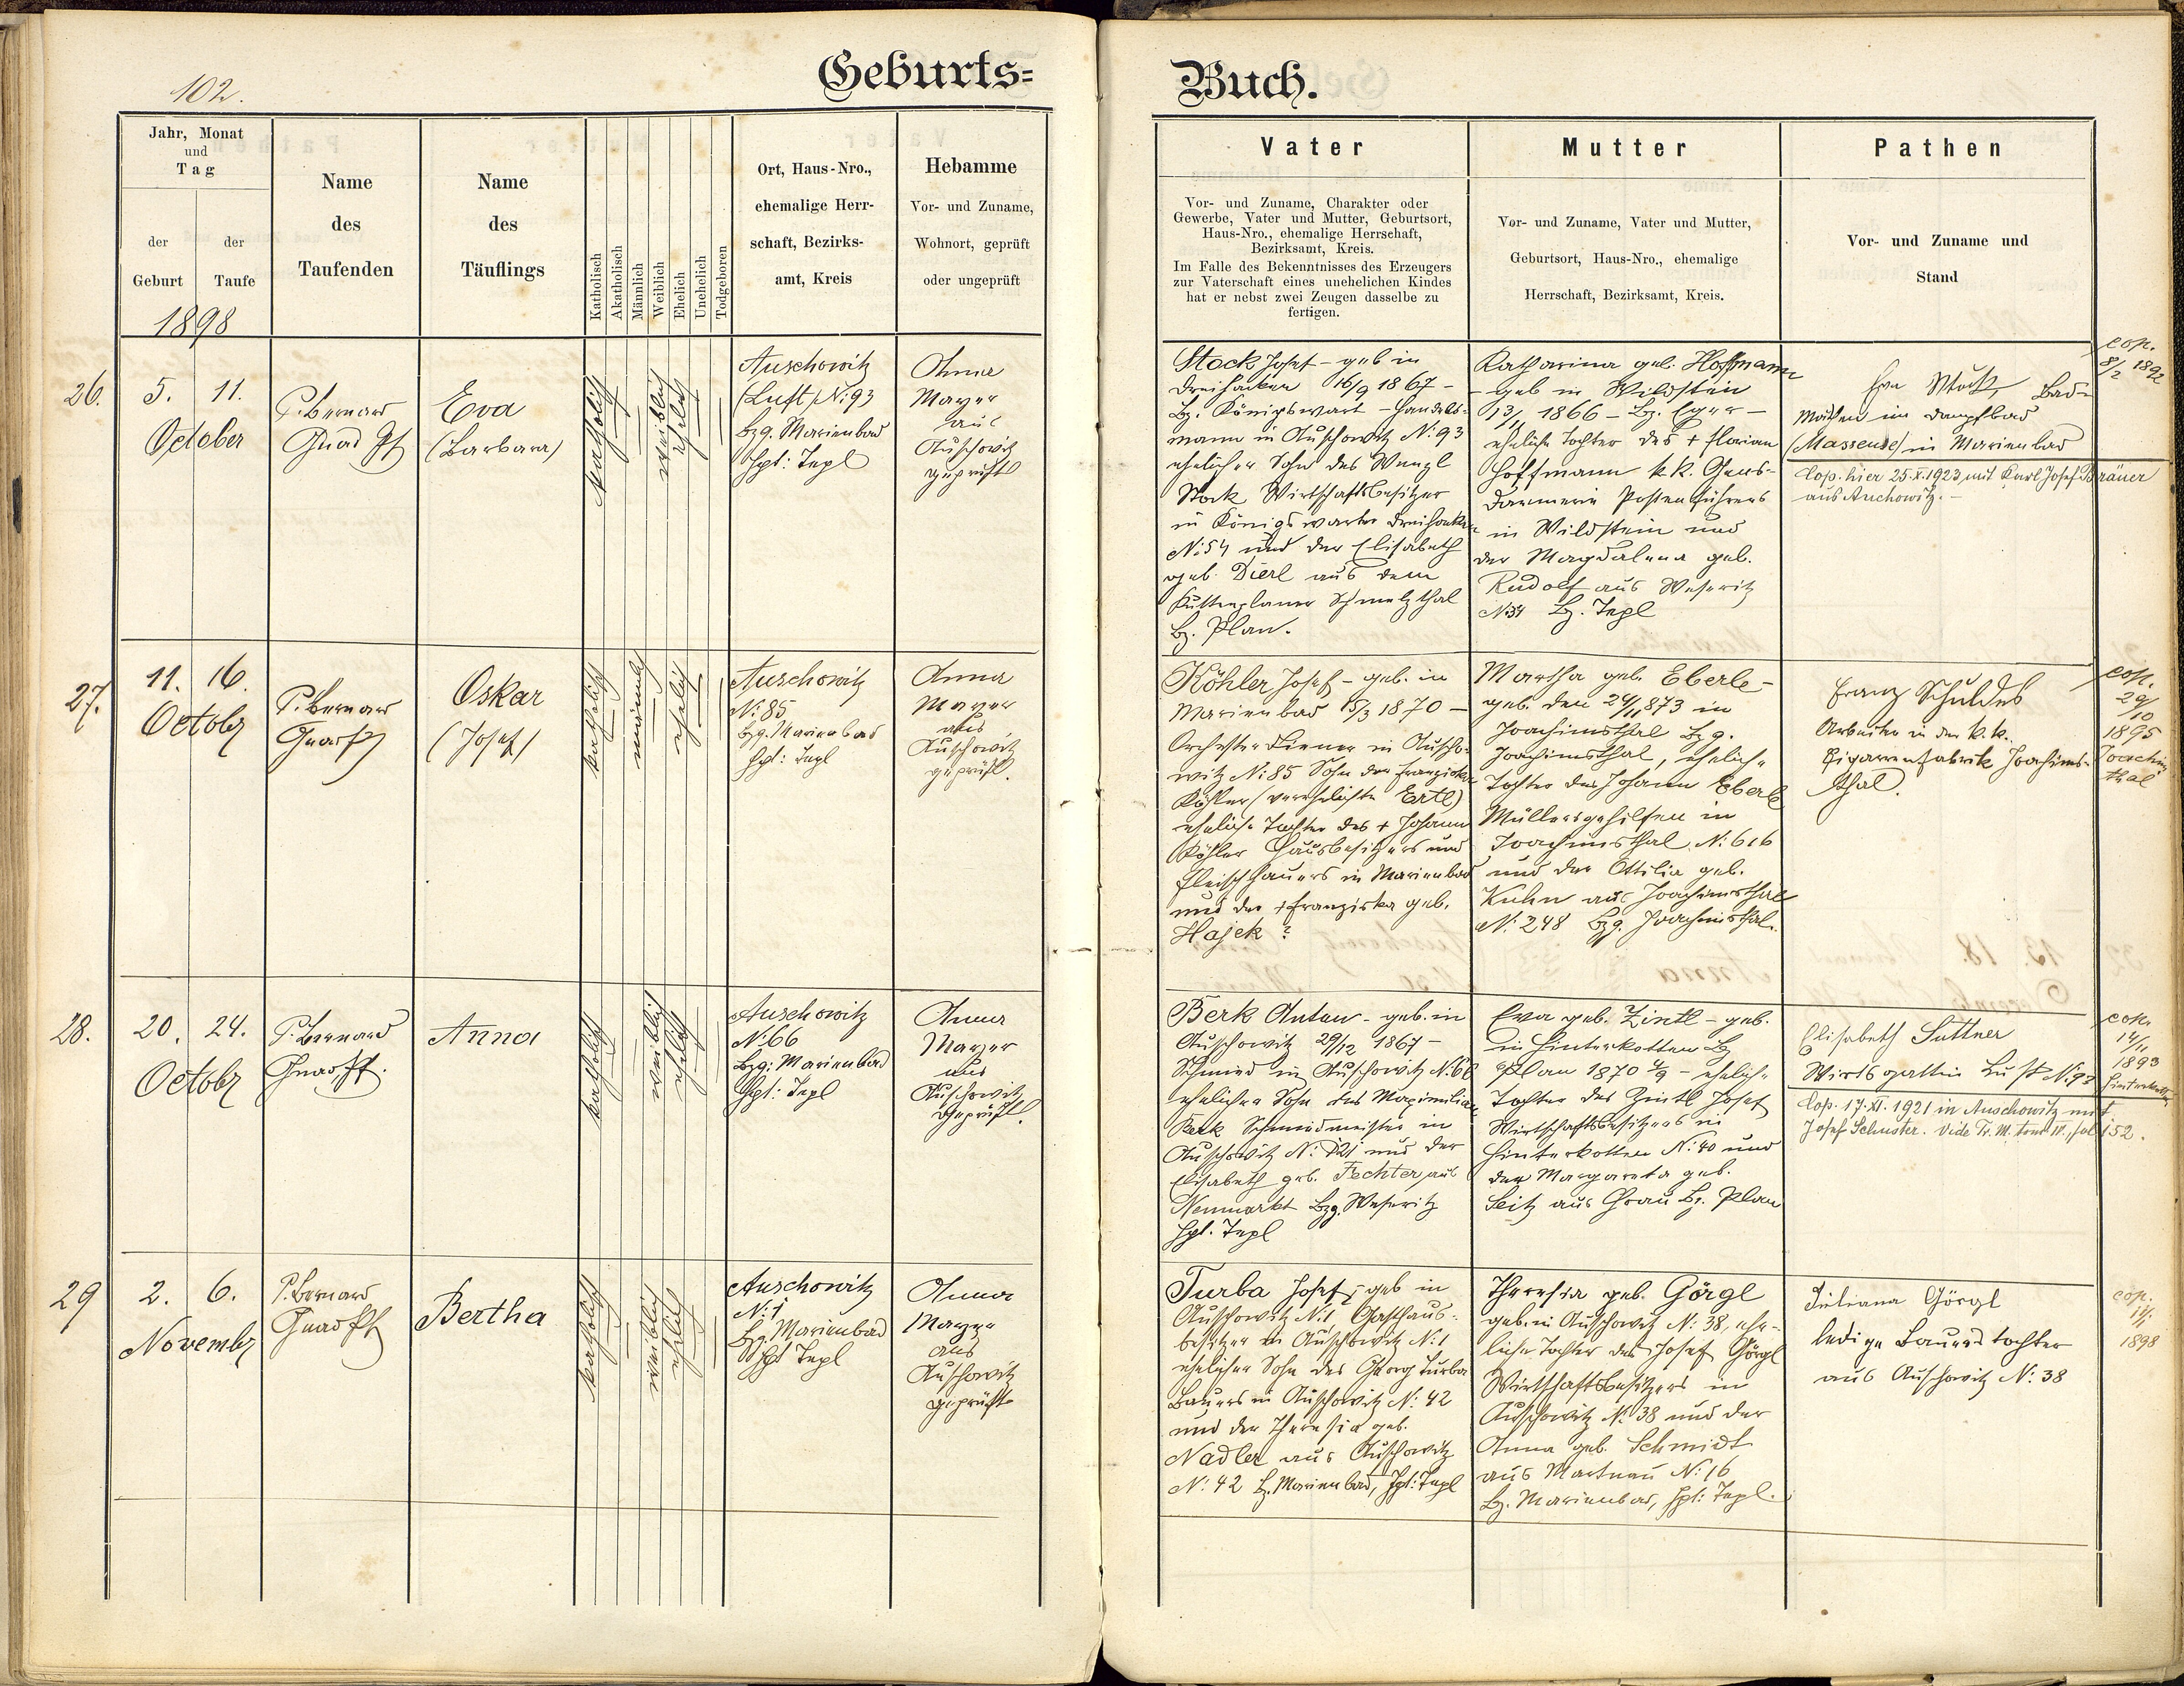 102.
Geburts=
Jahr, Monat
und
Tag
der
Geburt
der
Taufe
1898
Name
des
Taufenden
Name
des
Täuflings
Katholisch
Akatholisch
Männlich
Weiblich
Ehelich
Unehelich
Todgeboren
Ort, Haus-Nro.,
ehemalige Herr-
schaft, Bezirks-
amt, Kreis
Hebamme
Vor- und Zuname,
Wohnort, geprüft
oder ungeprüft
26.
5. 11.
October
P. Bernard
Gnad Pf
Eva
(Barbara)
katholisch
weiblich
ehelich
Auschowitz
(Luft) N: 93
Bzg. Marienbad
Hpt: Tepl
Anna
Mayer
aus
Auschowitz
geprüft
27.
11. 16.
Octobr
P. Bernard
Gnad Pf
Oskar
(Josef)
katholisch
männlich
ehelich
Auschowitz
N: 85
Bzg. Marienbad
Hpt: Tepl
Anna
Mayer
aus
Auschowitz
geprüft.
28.
20. 24.
Octobr
P. Bernard
Gnad Pf.
Anna
katholisch
weiblich
ehelich
Auschowitz
N: 66
Bzg: Marienbad
Hpt: Tepl
Anna
Mayer
aus
Auschowitz
geprüft.
29
2. 6.
Novembr
P. Bernard
Gnad Pf
Bertha
katholisch
weiblich
ehelich
Auschowitz
N: 1
Bzg. Marienbad
Hpt Tepl
Anna
Mayer
aus
Auschowitz
geprüft
Buch.
Vater
Vor- und Zuname, Charakter oder
Gewerbe, Vater und Mutter, Geburtsort,
Haus-Nro., ehemalige Herrschaft,
Bezirksamt, Kreis.
Im Falle des Bekenntnisses des Erzeugers
zur Vaterschaft eines unehelichen Kindes
hat er nebst zwei Zeugen dasselbe zu
fertigen.
Mutter
Vor- und Zuname, Vater und Mutter,
Geburtsort, Haus-Nro., ehemalige
Herrschaft, Bezirksamt, Kreis.
Pathen
Vor- und Zuname und
Stand
Stock Josef – geb in
Dreihacken 16/9 1867 –
Bz. Königswart – Handels-
mann in Auschowitz N: 93
ehelicher Sohn des Wenzl
Stock Wirtschaftsbesitzer
in Königswarter Dreihacken
N: 54 und der Elisabeth
geb. Dierl aus dem
Kuttenplaner Schmelzthal
Bz. Plan.
Katharina geb. Hoffmann
– geb in Wildstein
13/1 1866 – Bz. Eger –
eheliche Tochter des + Florian
Hoffmann k. k. Gens-
darmerie Postenführers
in Wildstein und
der Magdalena geb.
Rudolf aus Weseritz
N: 34 Bz. Tepl
Eva Stock, Bade-
mädchen im Dampfbad
(Masseuse) in Marienbad
Cop. hier 25.X.1923 mit Karl Josef Bräuer
aus Auchowitz. –
cop.
8/2 1892
Köhler Josef – geb. in
Marienbad 15/3 1870 –
Orchesterdiener in Auscho-
witz N: 85 Sohn der Franziska
Köhler (verehelichte Ertl)
eheliche Tochter des + Johann
Köhler Hausbesitzers und
Fleischhauers in Marienbad
und der + Franziska geb.
Hajek ?
Martha geb. Eberle –
geb. den 24/11 873 in
Joachimsthal Bzg.
Joachimsthal, eheliche
Tochter des Johann Eberle
Müllersgehilfen in
Joachimsthal N: 616
und der Ottilia geb.
Kuhn aus Joachimsthal
N: 248 Bzg. Joachimsthal.
Franz Schuldes
Arbeiter in der k. k.
Cigarrenfabrik Joachims-
thal.
cop.
29/10
1895
Joachims
thal
Berk Anton – geb. in
Auschowitz 29/12 1867 –
Schmied in Auschowitz N: 66
ehelicher Sohn des Maximilian
Berk Schmiedmeister in
Auschowitz N: 21 und der
Elisabeth geb. Fechter aus
Neumarkt Bzg. Weseritz
Hpt. Tepl
Eva geb. Zintl – geb.
in Hinterkotten Bz
Plan 1870 /9 – eheliche
Tochter des Zintl Josef
Wirtschaftsbesitzers in
Hinterkotten N: 40 und
der Margareta geb.
Seitz aus Gbau Bz. Plan
Elisabeth Suttner
Wirtsgattin Luft N: 93
Cop. 17.XI.1921 in Auschowitz mit
Josef Schuster. Vide Tr. M. tom IV, fol 152.
cop.
14/11
1893
Hinterkotten
Turba Josef; geb in
Auschowitz N: 1, Gasthaus-
besitzer in Auschowitz N: 1
ehelicher Sohn des Georg Turba
Bauers in Auschowitz N: 42
und der Theresia geb.
Nadler aus Auschowitz
N: 42 Bz. Marienbad, Hpt: Tepl
Theresia geb. Görgl
geb. in Auschowitz N: 38, ehe-
liche Tochter des Josef Görgl
Wirtschaftsbesitzers in
Auschowitz N: 38 und der
Anna geb. Schmidt
aus Martnau N: 16
Bz. Marienbad, Hpt: Tepl.
Juliana Görgl
ledige Bauerstochter
aus Auschowitz N: 38
cop.
1898